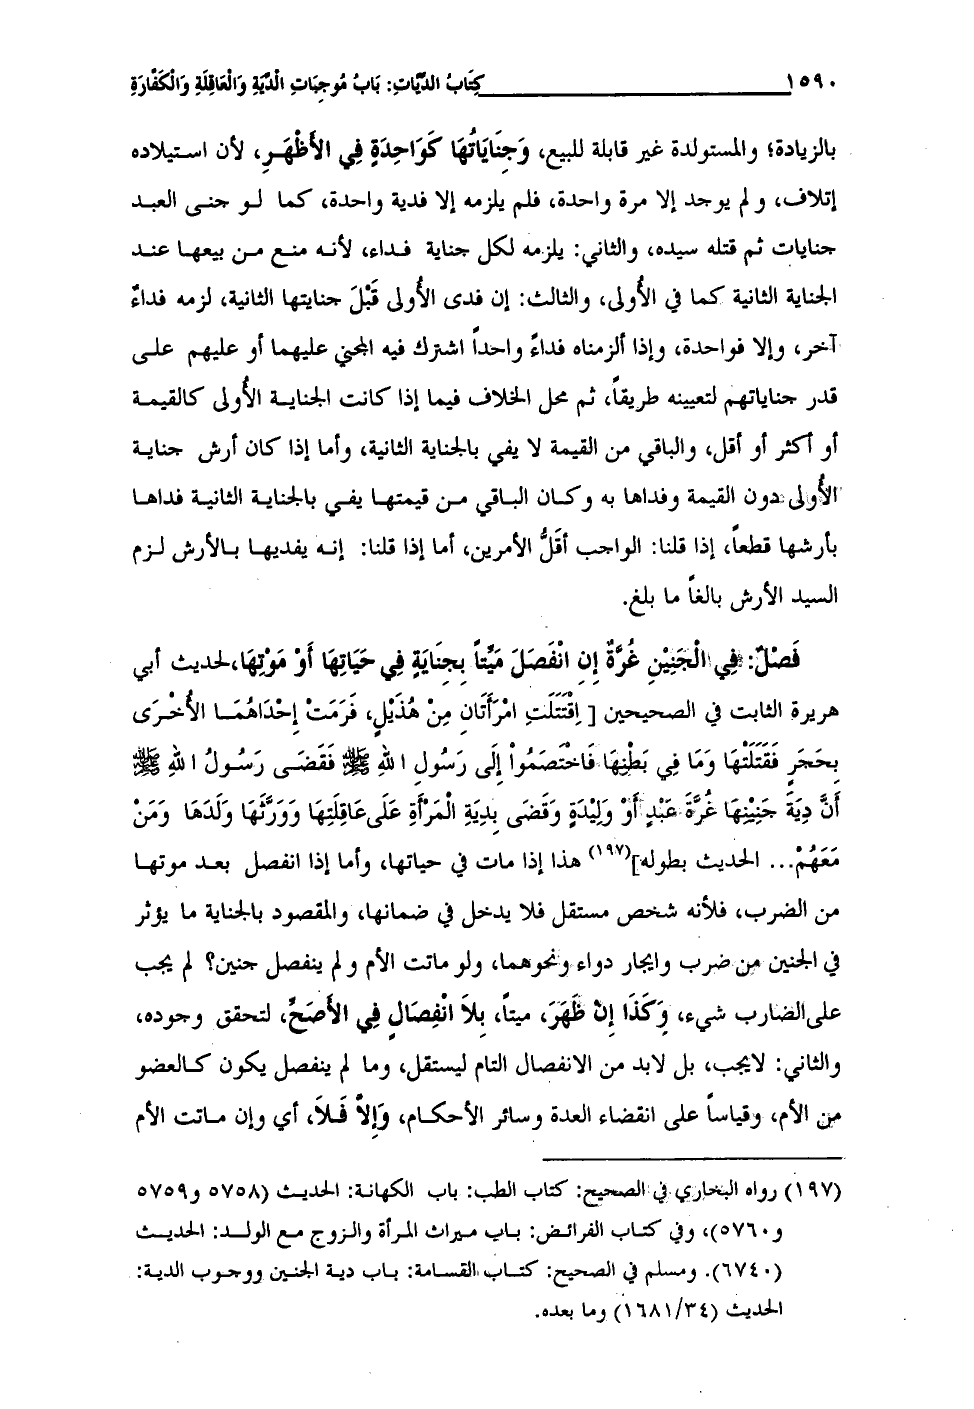 ١٥٩٠ كِتَابُ الدِّيَّاتِ: بَابُ مُوجِبَاتِ الْدِّيَةِ وَالْعَاقِلَةِ وَالْكَفَّارَةِ
بالزيادة؛ والمستولدة غير قابلة للبيع، وَجِنَايَاتُهَا كَوَاحِدَةٍ فِي الأَظْهَرِ، لأن استيلاده
إتلاف، ولم يوجد إلا مرة واحدة، فلم يلزمه إلا فدية واحدة، كما لو جنى العبد
جنايات ثم قتله سيده، والثاني: يلزمه لكل جناية فداء، لأنه منع من بيعها عند
الجناية الثانية كما في الأُولى، والثالث: إن فدى الأُولى قَبْلَ جنايتها الثانية، لزمه فداءٌ
آخر، وإلا فواحدة، وإذا ألزمناه فداءً واحداً اشترك فيه المجني عليهما أو عليهم على
قدر جناياتهم لتعيينه طريقاً، ثم محل الخلاف فيما إذا كانت الجناية الأُولى كالقيمة
أو أكثر أو أقل، والباقي من القيمة لا يفي بالجناية الثانية، وأما إذا كان أرش جناية
الأُولى دون القيمة وفداها به وكان الباقي من قيمتها يفي بالجناية الثانية فداها
بأرشها قطعاً، إذا قلنا: الواجب أقَلُّ الأمرين، أما إذا قلنا: إنه يفديها بالأرش لزم
السيد الأرش بالغاً ما بلغ.
فَصْلٌ: فِي الْجَنِيْنِ غُرَّةٌ إِنِ انْفَصَلَ مَيِّتاً بِجِنَايَةٍ فِي حَيَاتِهَا أَوْ مَوْتِهَا، لحديث أبي
هريرة الثابت في الصحيحين [ اِقْتَتَلَتِ امْرَأَتَانِ مِنْ هُذَيْلٍ، فَرَمَتْ إِحْدَاهُمَا الأُخْرَى
بِحَجَرٍ فَقَتَلَتْهَا وَمَا فِي بَطْنِهَا فَاخْتَصَمُواْ إِلَى رَسُولِ اللهِ ﷺ فَقَضَى رَسُولُ اللهِ ﷺ
أَنَّ دِيَةَ جَنِيْنِهَا غُرَّةَ عَبْدٍ أَوْ وَلِيْدَةٍ وَقَضَى بِدِيَةِ الْمَرْأَةِ عَلَى عَاقِلَتِهَا وَوَرَّثَهَا وَلَدَهَا وَمَنْ
مَعَهُمْ... الحديث بطوله](١٩٧) هذا إذا مات في حياتها، وأما إذا انفصل بعد موتها
من الضرب، فلأنه شخص مستقل فلا يدخل في ضمانها، والمقصود بالجناية ما يؤثر
في الجنين من ضرب وايجار دواء ونحوهما، ولو ماتت الأم ولم ينفصل جنين؟ لم يجب
على الضارب شيء، وَكَذَا إِنْ ظَهَرَ، ميتاً، بِلاَ انْفِصَالٍ فِي الأَصَحِّ، لتحقق وجوده،
والثاني: لايجب، بل لابد من الانفصال التام ليستقل، وما لم ينفصل يكون كالعضو
من الأم، وقياساً على انقضاء العدة وسائر الأحكام، وَإِلاَّ فَلاَ، أي وإن ماتت الأم
(١٩٧) رواه البخاري في الصحيح: كتاب الطب: باب الكهانة: الحديث (٥٧٥٨ و٥٧٥٩
و٥٧٦٠)، وفي كتاب الفرائض: باب ميراث المرأة والزوج مع الولد: الحديث
(٦٧٤٠). ومسلم في الصحيح: كتاب القسامة: باب دية الجنين ووجوب الدية:
الحديث (١٦٨١/٣٤) وما بعده.